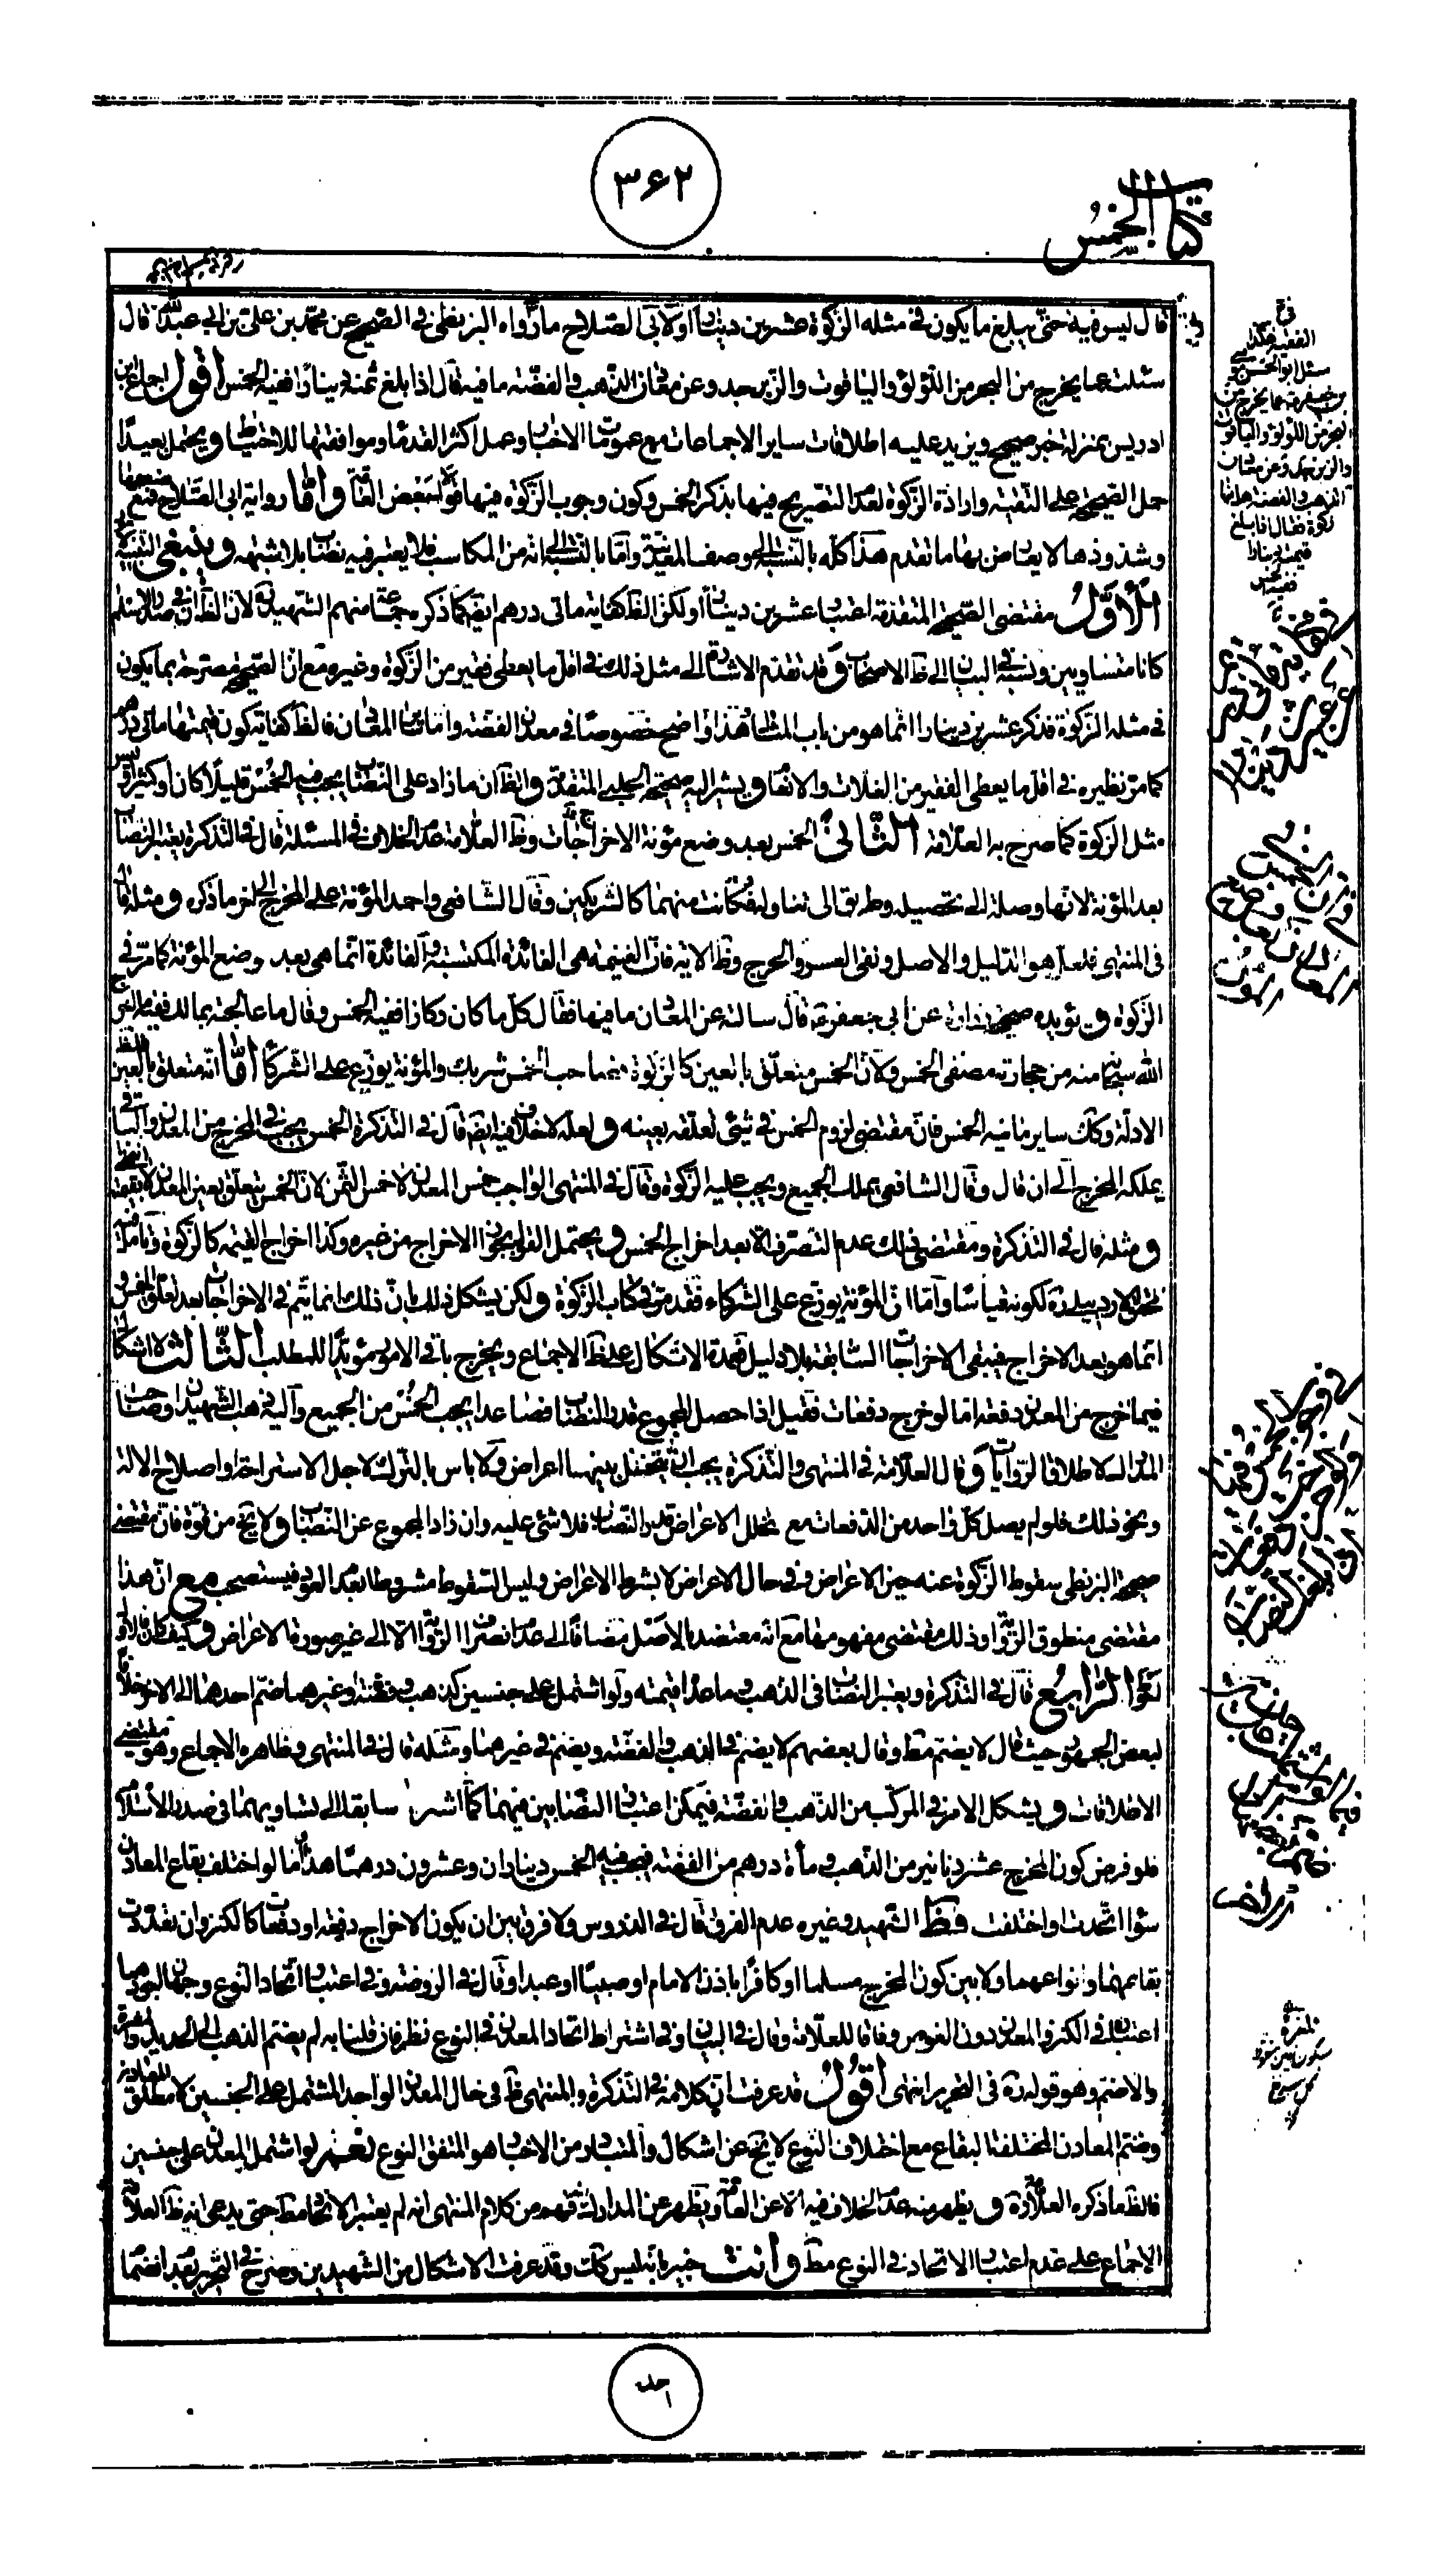 ٣۶٢
كتاب الخمس
قال ليس فيه حتى يبلغ ما يكون في مثله الزكوة عشرين دينارا ولابي الصلاح ما رواه البزنطي في الصحيح عن محمد بن علي بن ابي عبد الله قال
سئلت عما يخرج من البحر من اللؤلؤ والياقوت والزبرجد وعن معادن الذهب والفضة ما فيه قال اذا بلغ ثمنه دينارا ففيه الخمس اقول اجماع ابن
ادريس بمنزلة خبر صحيح ويزيد عليه اطلاقات ساير الاجماعات مع عمومات الاخبار وعمل اكثر القدماء وموافقتها للاحتياط ويحتمل بعيدا
حمل الصحيحة على التقية وارادة الزكوة لعدم التصريح فيها بذكر الخمس وكون وجوب الزكوة فيها قولا لبعض العامة واما رواية ابي الصلاح فمع ضعفها
وشذوذها لا يعارض بها ما تقدم هذا كله بالنسبة الى وصف المعدن واما بالنسبة الى انه من المكاسب فلا يعتبر فيه نصاب بلا شبهة وينبغي التنبيه
الاول مقتضى الصحيحة المتقدمة اعتبار عشرين دينارا ولكن الظ كفاية مأتي درهم ايضا كما ذكره جماعة منهم الشهيد لان الظ انهما في صدر الاسلام
كانا متساويين ونسبه في البيان الى ظ الاصحاب وقد تقدم الاشارة الى مثل ذلك في اقل ما يعطى فقير من الزكوة وغيره مع ان الصحيحة مصرحة بما يكون
في مثله الزكوة فذكر عشرين دينارا انما هو من باب المثال وهذا واضح خصوصا في معدن الفضة واما سائر المعادن فالظ كفاية كون قيمتها مأتي درهم
كما مر نظيره في اقل ما يعطى الفقير من الغلات والانعام ويشير اليه صحيحة الحلبي المتقدمة والظ ان ما زاد على النصاب يجب فيه الخمس قليلا كان او كثيرا وليس
مثل الزكوة كما صرح به العلامة الثاني الخمس بعد وضع مؤنة الاخراجات وظ العلامة عدم الخلاف في المسئلة قال في التذكرة يعتبر النصاب
بعد المؤنة لانها وصلة الى تحصيله وطريق الى تناوله فكانت منهما كالشريكين وقال الشافعي واحمد المؤنة على المخرج الى اخر ما ذكره ومثله قال
في المنتهى فلعله هو الدليل والاصل ونفي العسر والحرج وظ الاية فان الغنيمة هي الفائدة المكتسبة والفائدة انما هي بعد وضع المؤنة كما مر في
الزكوة ويؤيده صحيحة زرارة عن ابي جعفر قال سالته عن المعادن ما فيها فقال كل ما كان ركازا ففيه الخمس وقال ما عالجته بمالك ففيه ما اخرج
الله سبحانه منه من حجارته مصفى الخمس ولان الخمس متعلق بالعين كالزكوة فصاحب الخمس شريك والمؤنة يوزع على الشركاء اما انه متعلق بالعين فلظ
الادلة وكك ساير ما فيه الخمس فان مقتضى لزوم الخمس في شيء تعلقه بعينه ولعله لا خلاف فيه ايضا قال في التذكرة الخمس يجب في المخرج من المعدن والباقي
يملكه المخرج الى ان قال وقال الشافعي يملك الجميع ويجب عليه الزكوة وقال في المنتهى الواجب خمس المعدن لا خمس الثمن لان الخمس يتعلق بعين المعدن لا بقيمته
ومثله قال في التذكرة ومقتضى ذلك عدم التصرف الا بعد اخراج الخمس ويحتمل القول بجواز الاخراج من غيره وكذا اخراج القيمة كالزكوة وتأمل فيه
المحقق الاردبيلي ره لكونه قياسا واما ان المؤنة يوزع على الشركاء فقد مر في كتاب الزكوة ولكن يشكل ذلك بان ذلك انما يتم في الاخراجات بعد تعلق الخمس و
انما هو بعد الاخراج فيبقى الاخراجات السابقة بلا دليل فعمدة الاشكال على ظ الاجماع ويخرج باقي الامور مؤيدا للمطلب الثالث لا اشكال
فيما اخرج من المعدن دفعة اما لو خرج دفعات فقيل اذا حصل المجموع قدر النصاب فصاعدا يجب الخمس من الجميع واليه ذهب الشهيدان وصاحب
المدارك لاطلاق الروايات وقال العلامة في المنتهى والتذكرة يجب ان لا يتخلل بينهما اعراض ولا باس بالترك لاجل الاستراحة او اصلاح الالة
ونحو ذلك فلو لم يصل كل واحد من الدفعات مع تخلل الاعراض قدر النصاب فلا شئ عليه وان زاد المجموع عن النصاب ولا يخ من قوة فان مقتضى
صحيحة البزنطي سقوط الزكوة عنه حين الاعراض وفي حال الاعراض لا بشرط الاعراض وليس السقوط مشروطا بعدم العود فيستصحب مع ان هذا
مقتضى منطوق الرواية وذلك مقتضى مفهومها مع انه معتضد بالاصل مضافا الى عدم انصراف الرواية الا الى غير صورة الاعراض وكيف كان فالاول
احوط الرابع قال في التذكرة ويعتبر النصاب في الذهب وما عداه قيمته ولو اشتمل على جنسين كذهب وفضة وغيرهما ضم احدهما الى الاخر خلافا
لبعض الجمهور حيث قال لا يضم مط وقال بعضهم لا يضم في الذهب والفضة ويضم في غيرهما ومثله قال في المنتهى وظاهره الاجماع وهو مقتضى
الاطلاقات ويشكل الامر في المركب من الذهب والفضة فيمكن اعتبار النصابين منهما كما اشرنا سابقا الى تساويهما في صدر الاسلام
فلو فرض كون المخرج عشر دنانير من الذهب ومأة درهم من الفضة فيجب فيه الخمس ديناران وعشرون درهما هذا اما لو اختلف بقاع المعادن
سواء اتحدت او اختلفت فظ الشهيد وغيره عدم الفرق قال في الدروس ولا فرق بين ان يكون الاخراج دفعة او دفعات كالكنز وان تعددت
بقاعهما وانواعهما ولا بين كون المخرج مسلما او كافرا باذن الامام او صبيا او عبدا وقال في الروضة وفي اعتبار اتحاد النوع وجهان اجودهما
اعتباره في الكنز والمعدن دون الغوص وفاقا للعلامة وقال في البيان وفي اشتراط اتحاد المعدن في النوع نظر فان قلنا به لم يضم الذهب الى الحديد والمغرة
والا ضم وهو قوله ره في التحرير انتهى اقول قد عرفت ان كلامه في التذكرة والمنتهى ظ في حال المعدن الواحد المشتمل على الجنسين لا مطلق المعادن
وضم المعادن المختلفة البقاع مع اختلاف النوع لا يخ عن اشكال والمتبادر من الاخبار هو المتفق النوع نعم لو اشتمل المعدن على جنسين
فالظ ما ذكره العلامة ره ويظهر منه عدم الخلاف فيه الا عن العامة ويظهر عن المدارك انه فهم من كلام المنتهى انه لم يعتبر الاتحاد مط حتى يدعى انه ظ العلامة
الاجماع على عدم اعتبار الاتحاد في النوع مط وانت خبير بانه ليس كك وقد عرفت الاشكال من الشهيدين وصرح في التحرير بعدم انضمام
في
الفقيه هكذا
سئل ابو الحسن موسى
بن جعفر ع عما يخرج من
البحر من اللؤلؤ والياقوت
والزبرجد وعن معادن
الذهب والفضة هل فيها
زكوة فقال اذا بلغ
قيمته دينارا
ففيه الخمس
المغرة